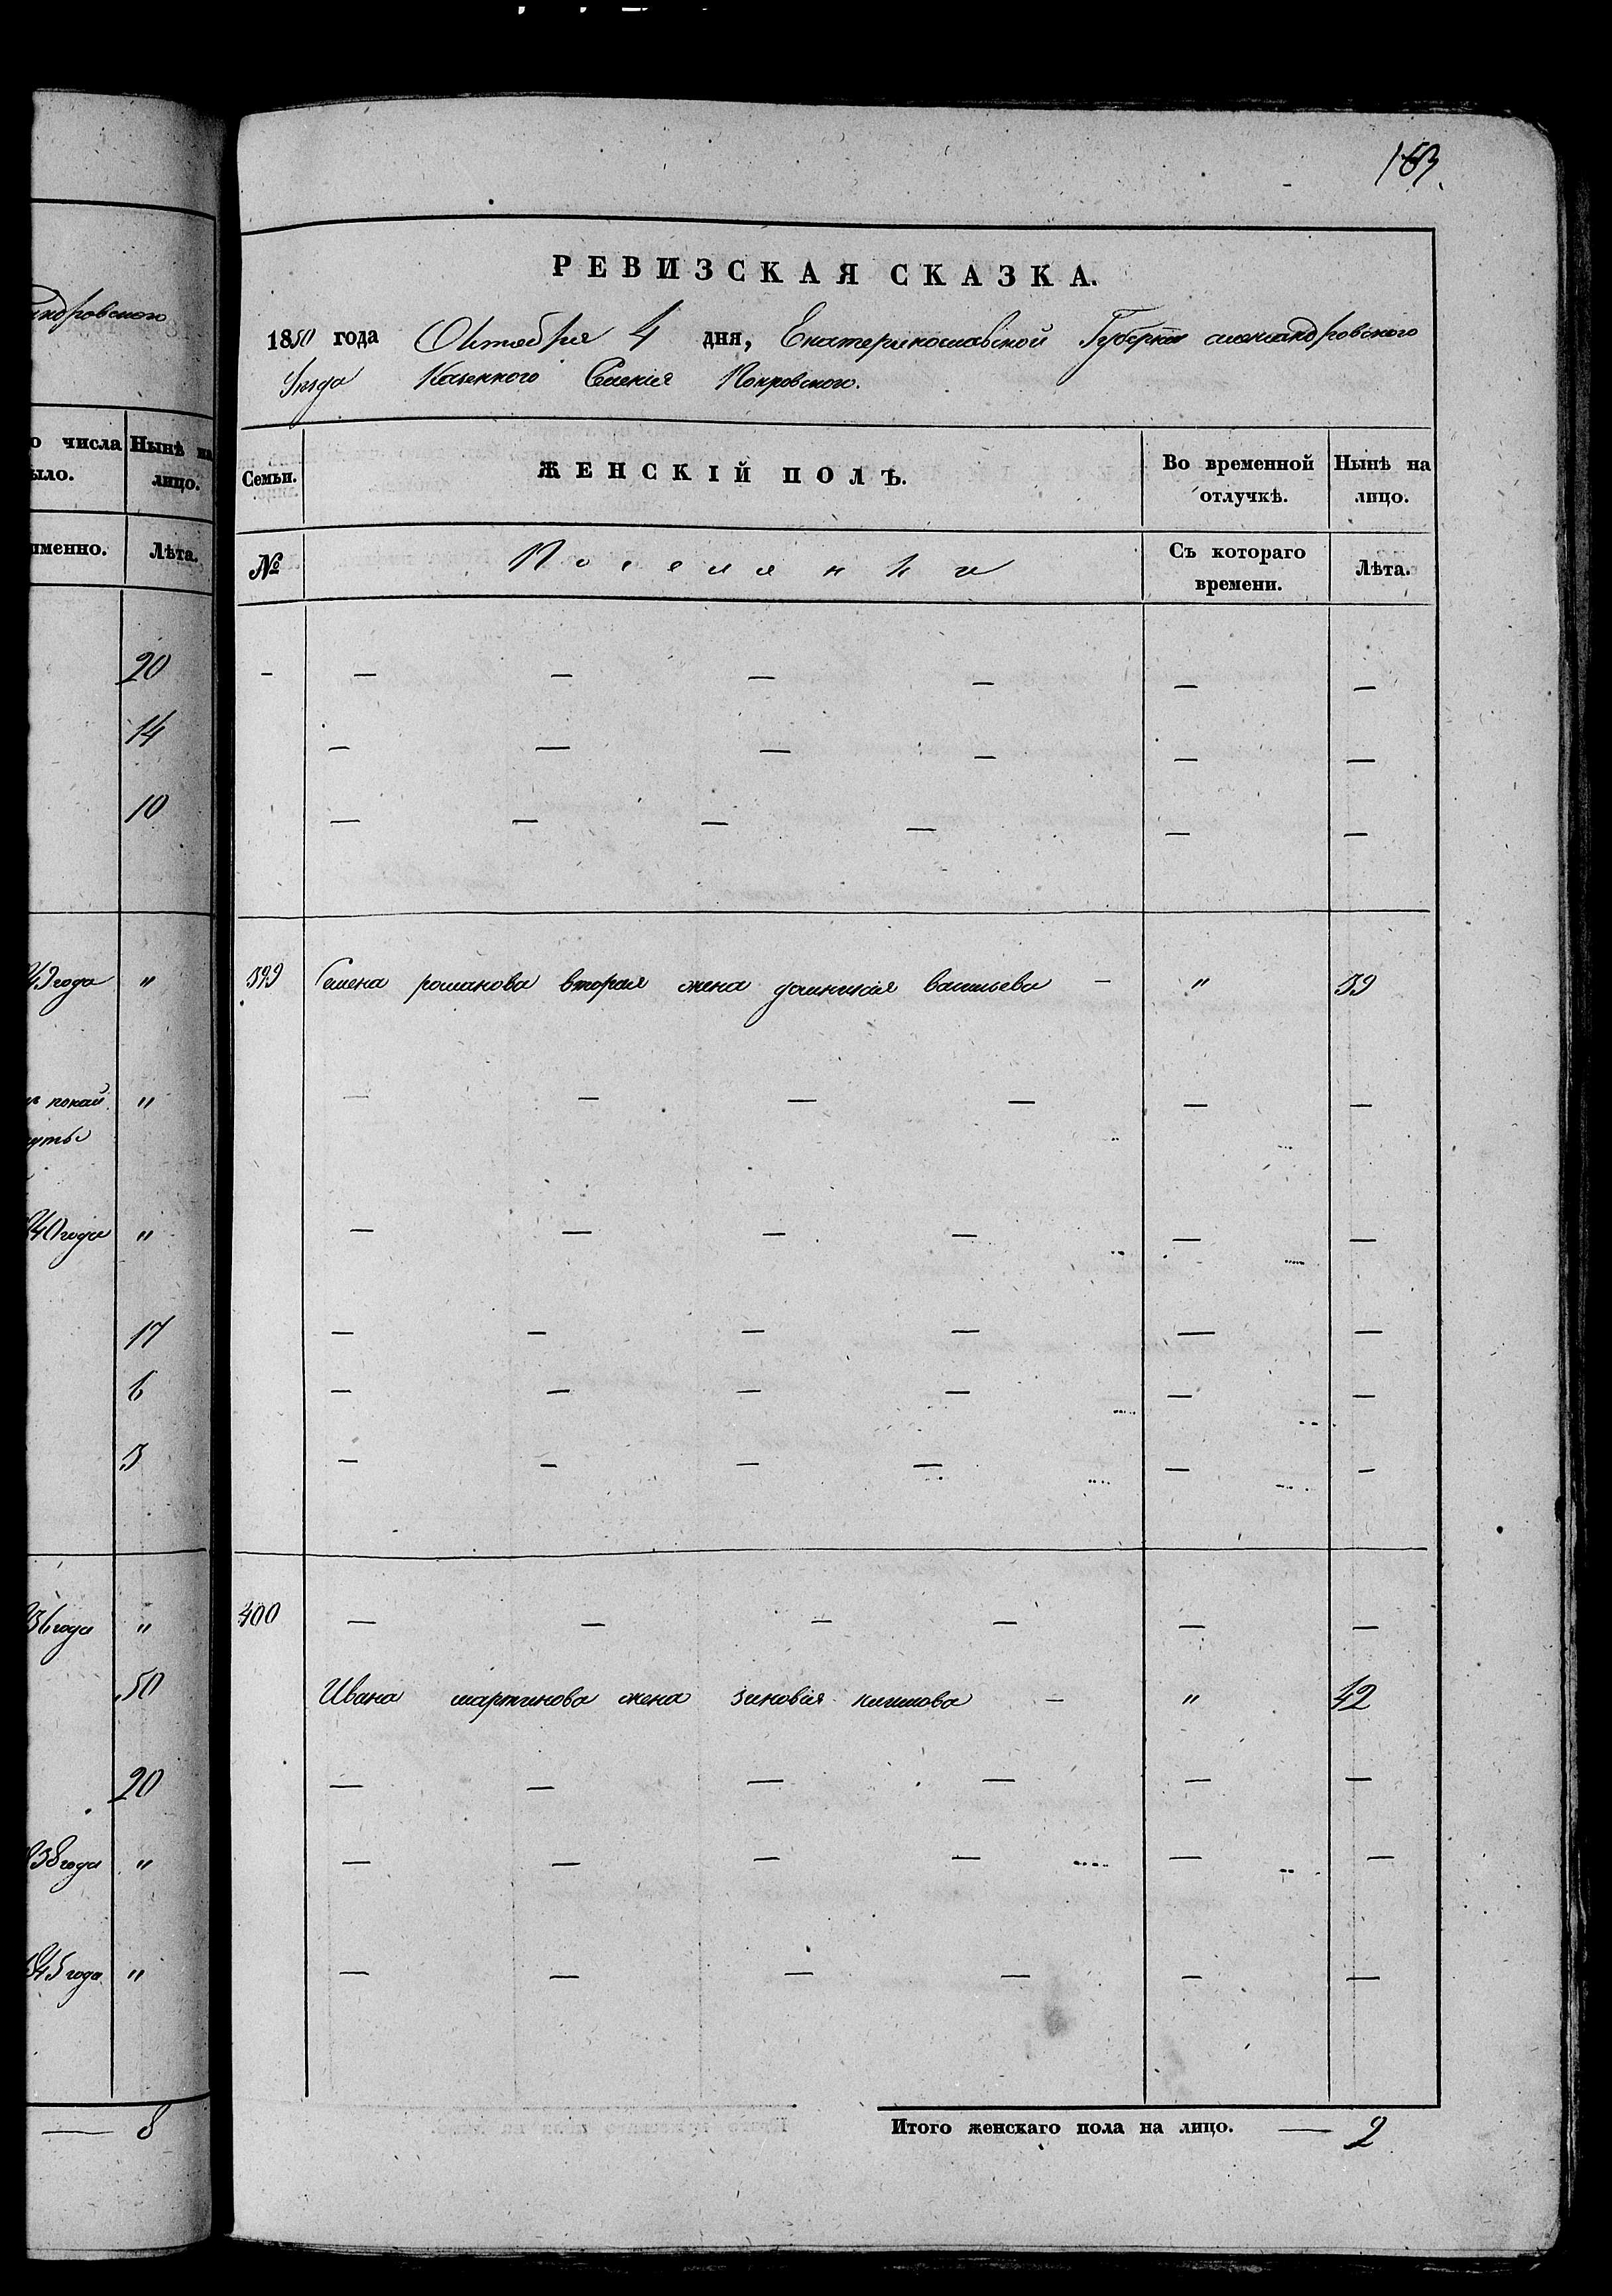 163
РЕВИЗСКАЯ СКАЗКА.
1850 года Октября 4 дня, Екатеринославской Губернии александровского
Уезда Казенного Селения Покровского.
ндровского
о числа Нынѣ на
ыло. лицо.
именно. Лѣта.
Семьи. ЖЕНСКІЙ ПОЛЪ. Во временной отлучкѣ. Нынѣ на лицо.
№ Поселянки Съ котораго времени. Лѣта.
20 - — — — — — —
14 — — — — — —
10 — — — — — —
49 года " 399 Семена романова вторая жена домникия васильева — " 39
" — — — — — —
40 года " — — — — — —
17 — — — — — —
6 — — — — — —
3 — — — — — —
36 года " 400 — — — — — —
50 Ивана мартинова жена зиновия — " 42
20 — — — — — —
838 года " — — — — — —
845 года " — — — — — —
— 8
Итого женскаго пола на лицо. — 2